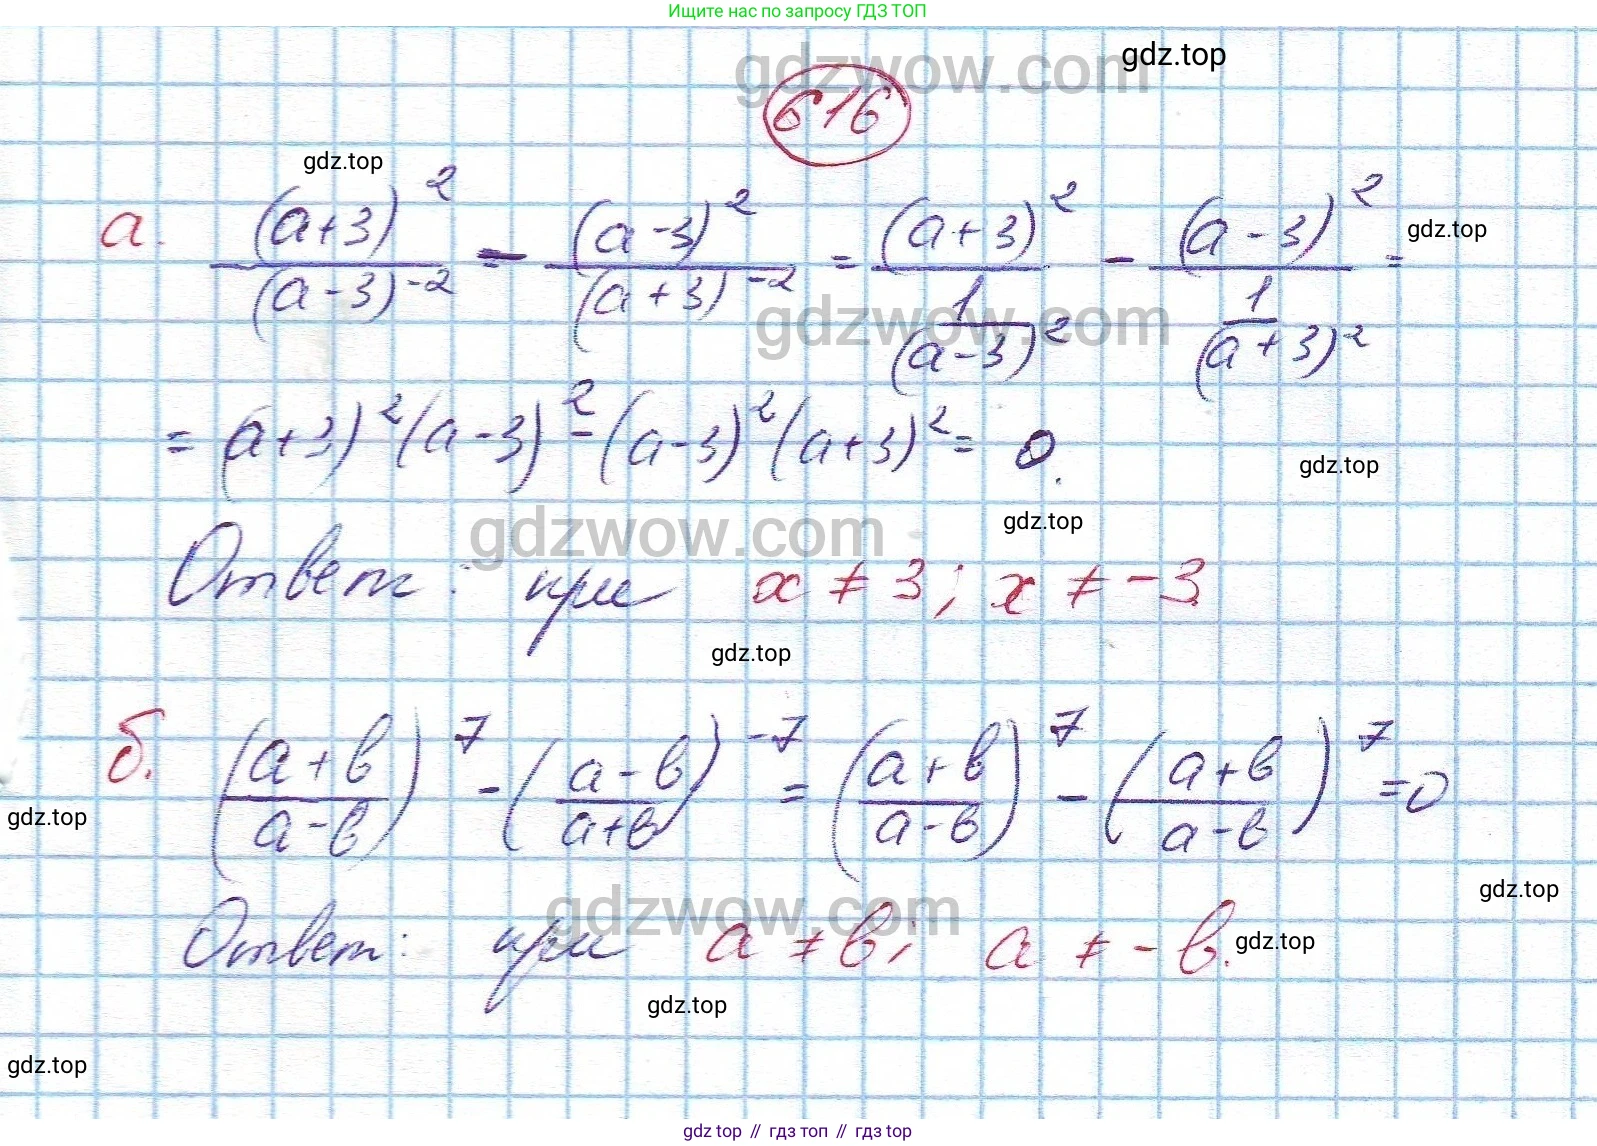 Ищите нас по запросу ГДЗ ТОП
gdzwow.com
gdz.top
616
gdz.top
а. (a+3)^2/(a-3)^-2 - (a-3)^2/(a+3)^-2 = (a+3)^2/(1/(a-3)^2) - (a-3)^2/(1/(a+3)^2) =
gdz.top
gdzwow.com
= (a+3)^2 (a-3)^2 - (a-3)^2 (a+3)^2 = 0.
gdz.top
gdzwow.com
gdz.top
Ответ: при x ≠ 3; x ≠ -3
gdz.top
б. ((a+b)/(a-b))^7 - ((a-b)/(a+b))^-7 = ((a+b)/(a-b))^7 - ((a+b)/(a-b))^7 = 0
gdz.top
gdz.top
gdzwow.com
Ответ: при a ≠ b; a ≠ -b.
gdz.top
gdz.top
gdz.top
gdz top // гдз топ // gdz top